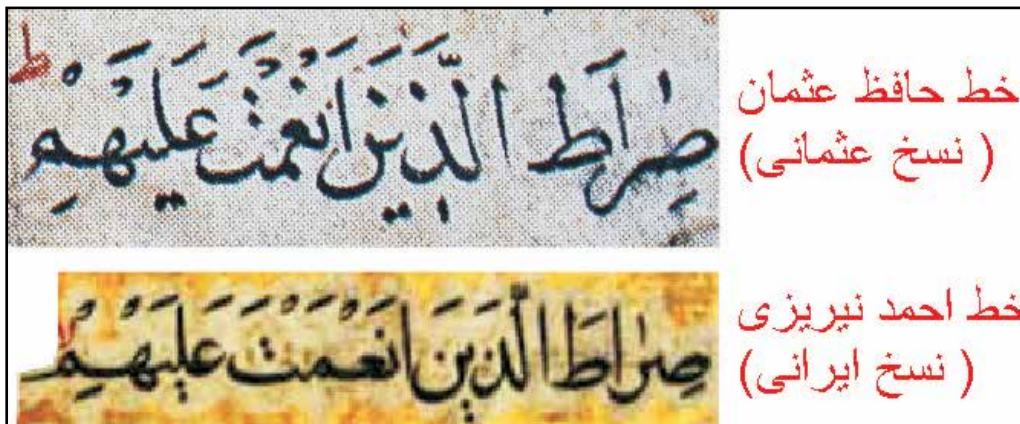 صِرَاطَ الَّذِينَ اَنْعَمْتَ عَلَيْهِمْ ط
خط حافظ عثمان
( نسخ عثمانی)
صِرٰاطَ الَّذِينَ اَنْعَمْتَ عَلَيْهِمْ
خط احمد نیریزی
( نسخ ایرانی)